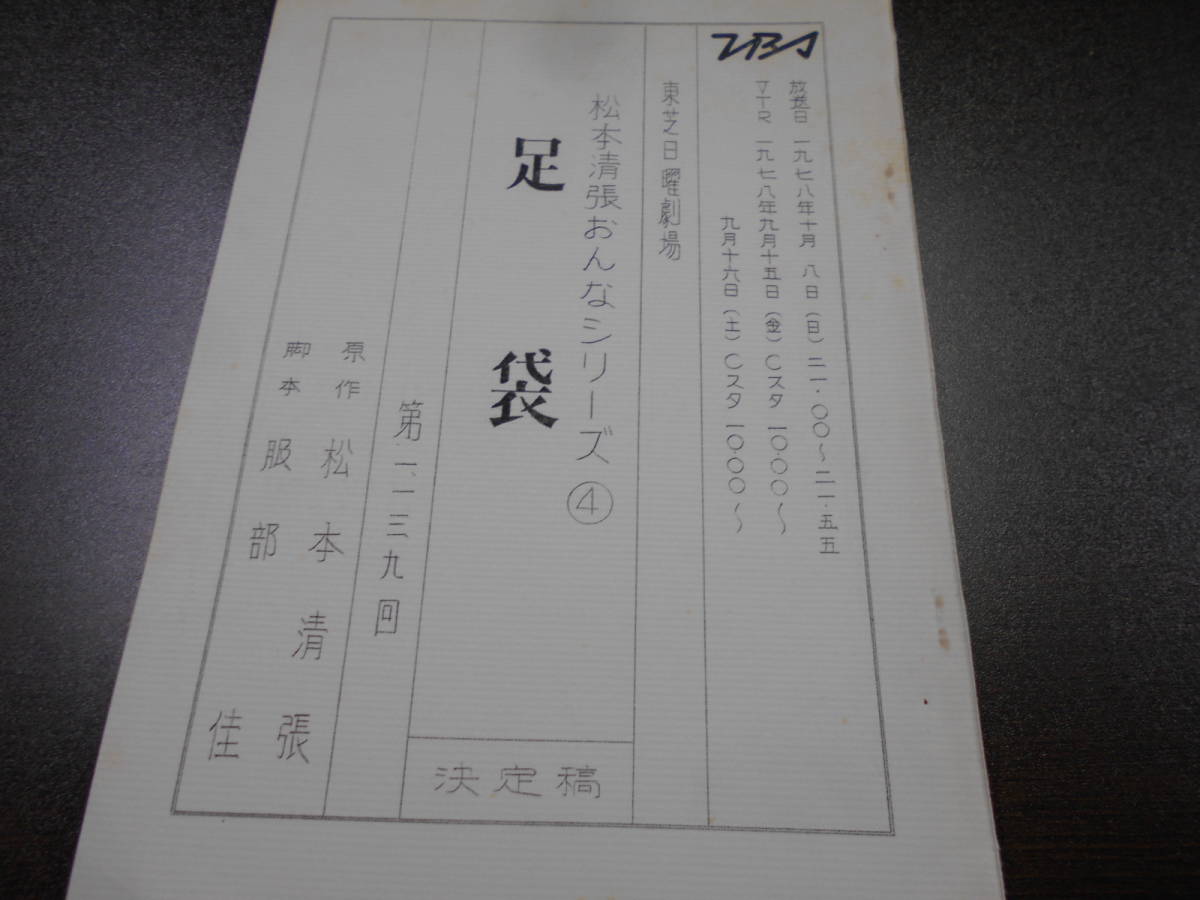 TBS
放送日 一九七八年十月 八日(日)二一・〇〇～二一・五五
VTR 一九七八年九月十五日(金)Cスタ 一〇:〇〇～
九月十六日(土)Cスタ 一〇:〇〇～
東芝日曜劇場
松本清張おんなシリーズ④
足袋
決定稿
第一、一三九回
原作 松本清張
脚本 服部佳